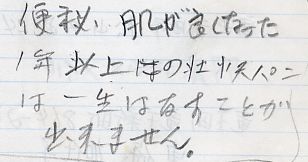 便秘、肌が良くなった
1年以上はの壮快パン
は一生はなすことが
出来ません。